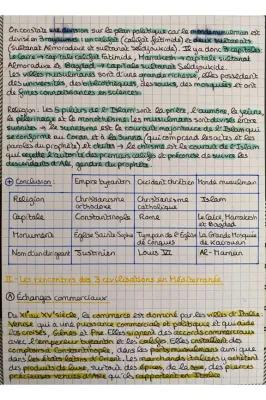 On constate une division sur le plan politique car le monde musulman est
divisé en 3 royaumes : un califat (califat fatimide) et deux sultanats
(sultanat Almoravide et sultanat Seldjoukide). Il y a donc 3 capitales
Le Caire → capitale califat fatimide, Marrakech → capitale sultanat
Almoravide et Bagdad → capitale sultanat Seldjoukide.
Les villes musulmanes sont d'une grande richesse, elles possèdent
des universités, des bibliothèques, des souks, des mosquées et ont
de fines connaissances en sciences.
Religion : Les 5 piliers de l'Islam sont la prière, l'aumône, le jeûne,
le pèlerinage et le monothéisme. Les musulmans sont divisés entre
sunnite → le sunnisme est le courant majoritaire de l'Islam qui
se conforme au Coran, et à la Sunna, (qui comprend les actes et les
paroles du prophète) et chiite → le chiisme est le courant de l'Islam
qui rejette l'autorité des premiers califes et préconise de suivre les
descendants d'Ali, gendre du prophète.
Conclusion : Empire byzantin Occident chrétien Monde musulman
Religion Christianisme orthodoxe Christianisme catholique Islam
Capitale Constantinople Rome Le Caire, Marrakech et Bagdad
Monument Eglise Sainte Sophie Tympan de l'Eglise de Conques La Grande Mosquée de Kairouan
Nom d'un dirigeant Justinien Louis VI Al-Mamun
II - Les rencontres des 3 civilisations en Méditerranée
A Echanges commerciaux
Du XIe au XVe siècle, le commerce est dominé par les villes d'Italie
Venise qui a une puissance commerciale et politique et qui aide
les croisés, Gênes et Pise. Elles signent des accords commerciaux
avec l'empereur byzantin et les califes. Elles installent des
comptoirs Constantinople, dans les ports musulmans ainsi que
dans les états latins d'Orient. Les marchands italiens y achètent
des produits de luxe, surtout des épices, de la soie, des pierres
précieuses venues d'Asie qu'ils rapportent en Italie